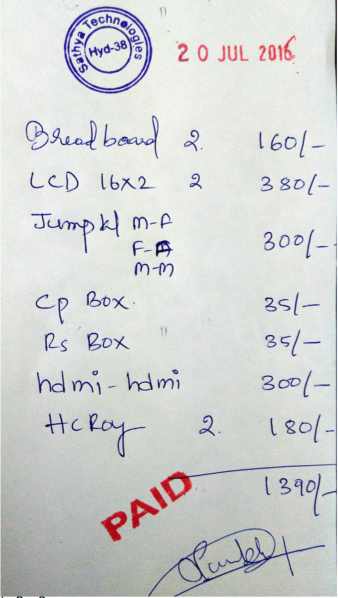 Sathya Technologies
Hyd-38
20 JUL 2016
Breadboard 2. 160/-
LCD 16x2 2 380/-
M-F
F-
M-M
300/-
Cp Box. 35/-
Rs Box 35/-
hdmi-hdmi 300/-
2. 180/-
1390/-
PAID